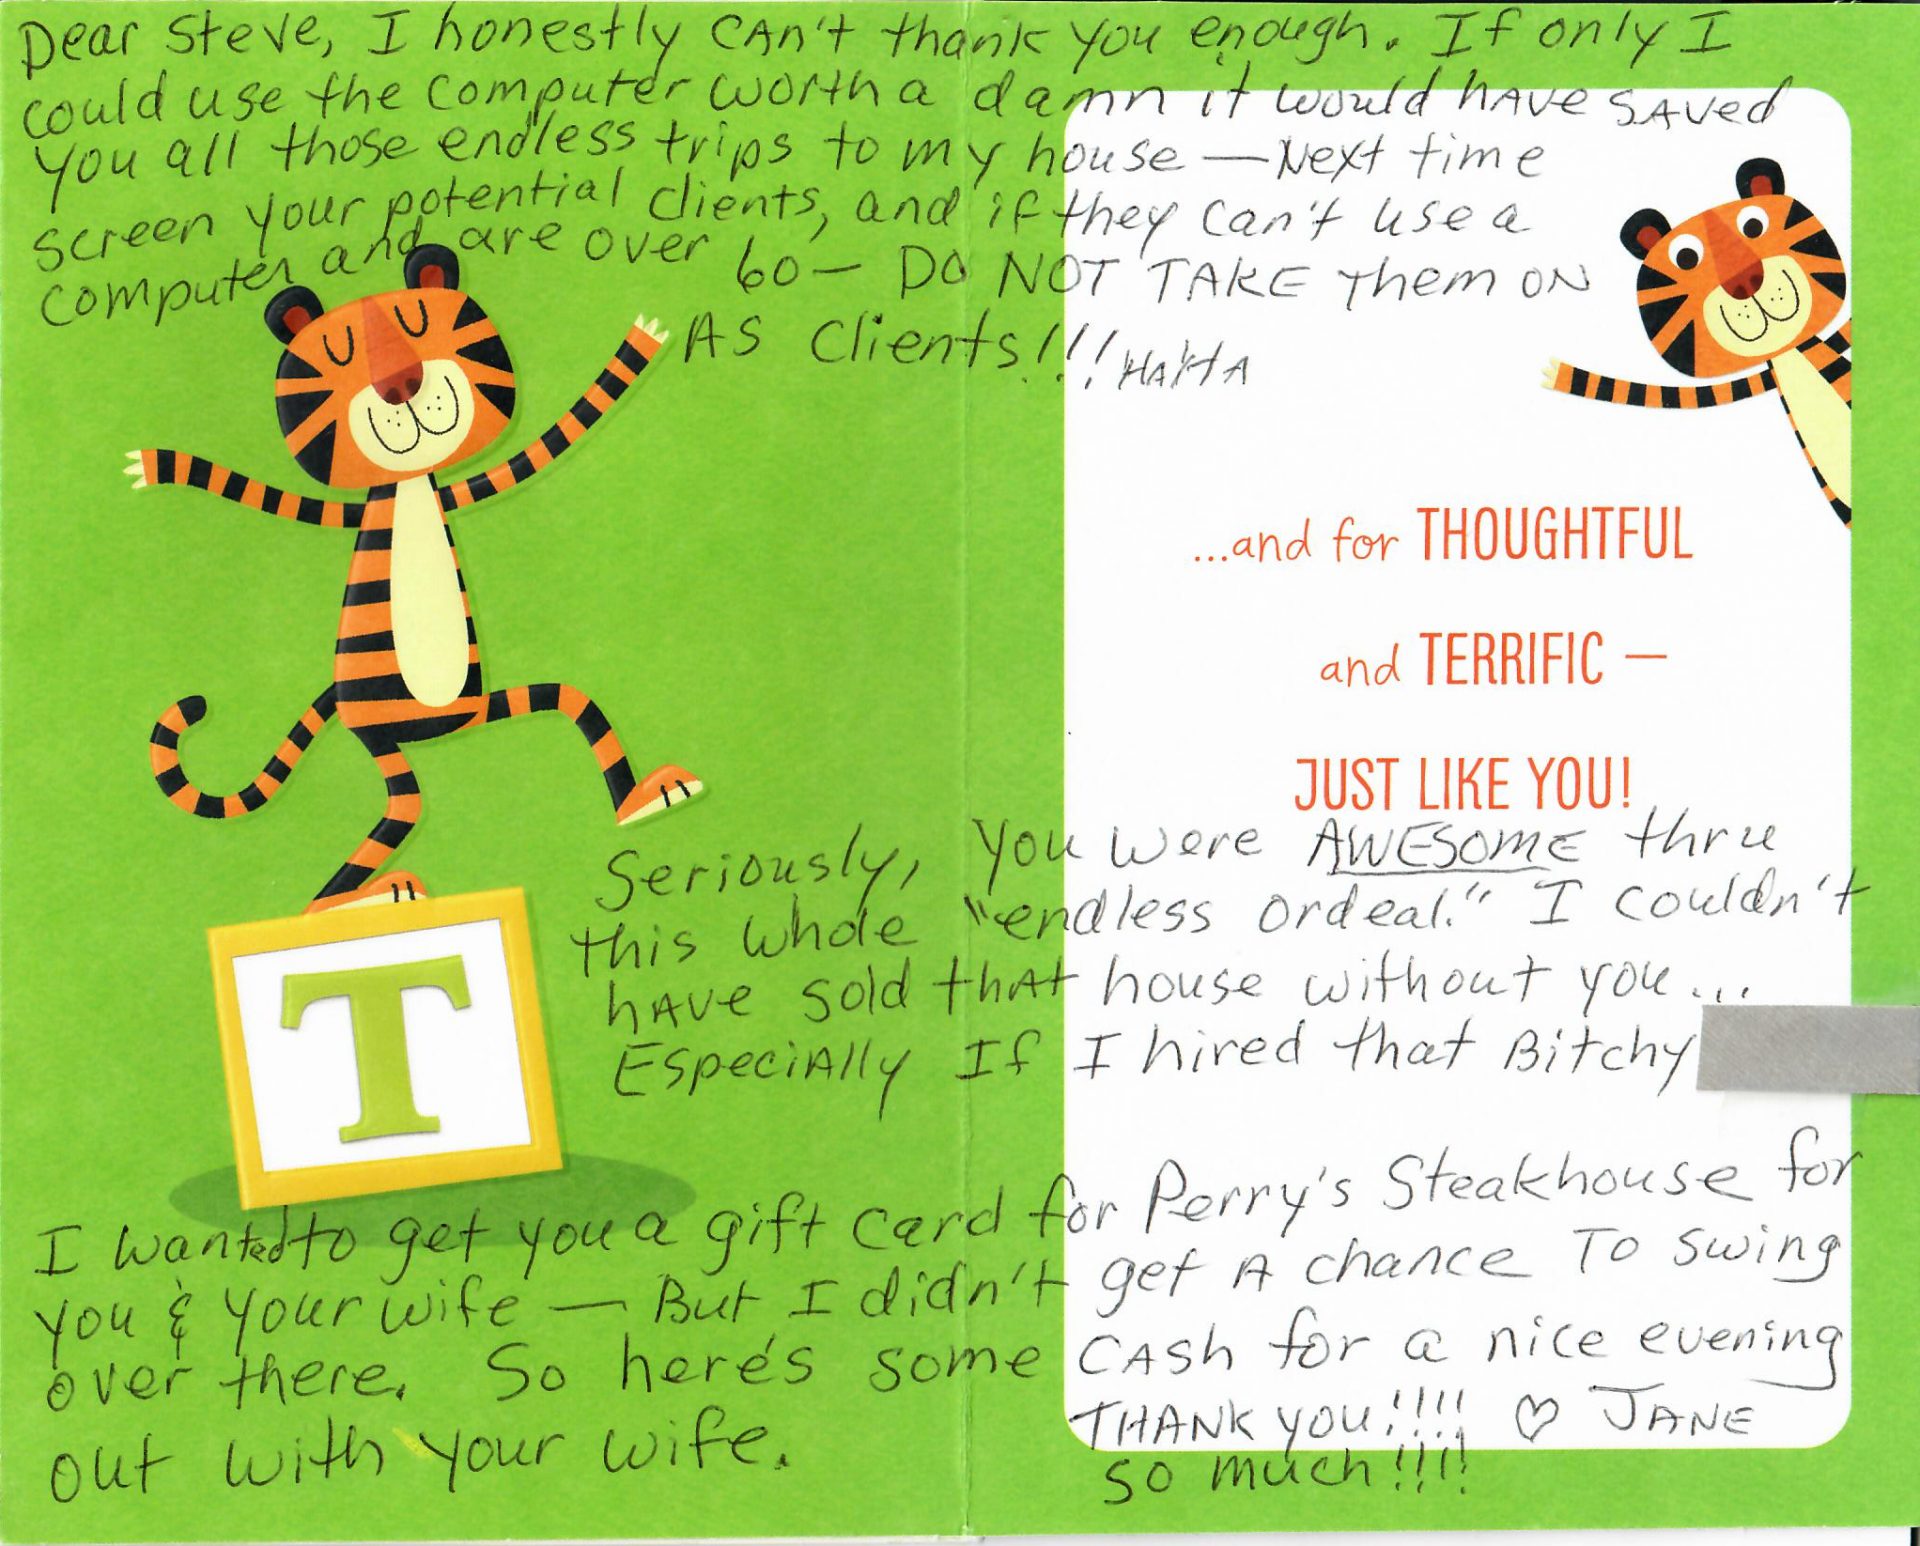 Dear Steve, I honestly CAn't thank you enough. If only I
could use the computer worth a damn it would HAVE SAVed
you all those endless trips to my house — Next time
screen your potential clients, and if they can't use a
computer and are over 60 — DO NOT TAKE them ON
AS clients!!! HAHA
...and for THOUGHTFUL
and TERRIFIC —
JUST LIKE YOU!
Seriously, you were AWESOME thru
this whole "endless ordeal." I couldn't
HAVE sold thAt house without you...
EspeciAlly If I hired that Bitchy
T
I wanted to get you a gift card for Perry's Steakhouse for
you & your wife — But I didn't get A chance To swing
over there. So here's some CASh for a nice evening
out with your wife.
THANK you!!!! ♡ JANE
so much!!!!